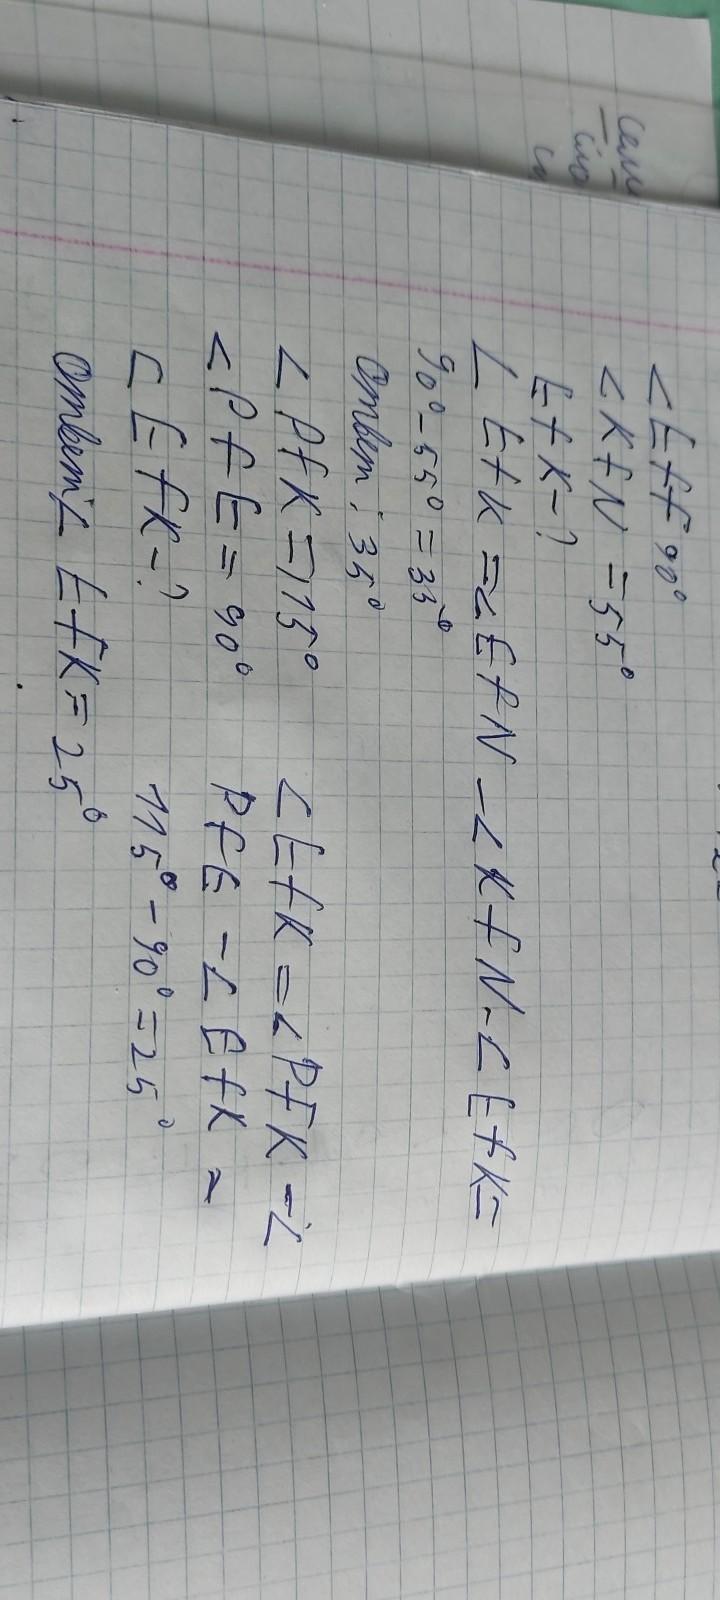 <EfF 90°
<KfN = 55°
EfK-?
∠ EfK =<EfN -<KfN-∠EfK=
90°-55°=35°
Ответ: 35°
< PfK =115°
<PfE=90°
∠EfK-?
<EfK=<PfK -∠
PfE -∠EfK =
115°-90°=25°
Ответ:∠ EfK=25°